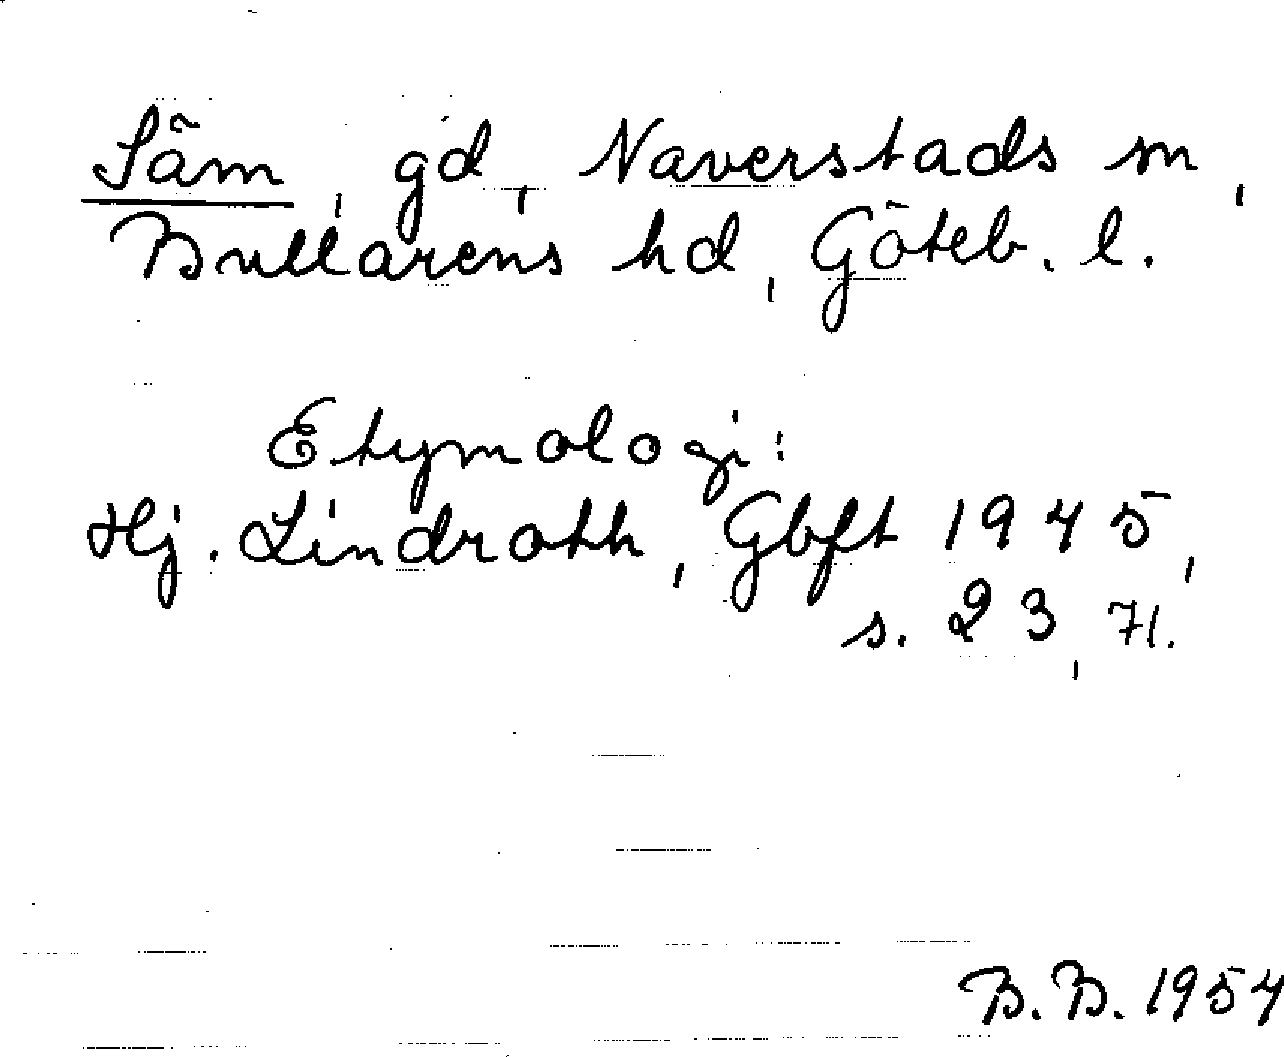 Säm, gd, Naverstads sn,
Bullarens hd, Göteb. l.
Etymologi:
Hj. Lindroth, Gbft 1945,
s. 23, 71.
B. B. 1954